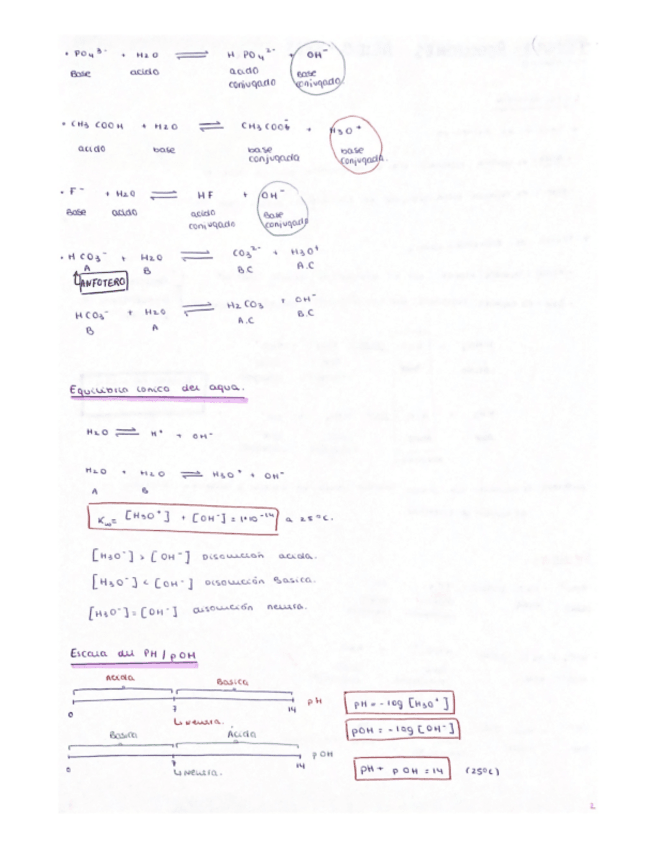 • PO4³⁻ + H2O ⇌ H PO4²⁻ + OH⁻
Base acido acido conjugado Base conjugado
• CH3 COOH + H2O ⇌ CH3 COO⁻ + H3O⁺
acido base base conjugada base conjugada.
• F⁻ + H2O ⇌ HF + OH⁻
Base acido acido conjugado Base conjugado
• H CO3⁻ + H2O ⇌ CO3²⁻ + H3O⁺
A B B.C A.C
ANFOTERO
HCO3⁻ + H2O ⇌ H2 CO3 + OH⁻
B A A.C B.C
Equilibrio ionico del agua.
H2O ⇌ H⁺ + OH⁻
H2O + H2O ⇌ H3O⁺ + OH⁻
A B
Kw= [H3O⁺] + [OH⁻] = 1•10⁻¹⁴ a 25ºC.
[H3O⁻] > [OH⁻] Disolución acida.
[H3O⁻] < [OH⁻] Disolución Basica.
[H3O⁻] = [OH⁻] disolución neutra.
Escala del PH / pOH
Acida Basica
0 7 14 pH
Neutra.
pH = - log [H3O⁺]
pOH = - log [OH⁻]
Basica Acida
0 7 14 pOH
Neutra.
pH + pOH = 14 (25ºC)
2